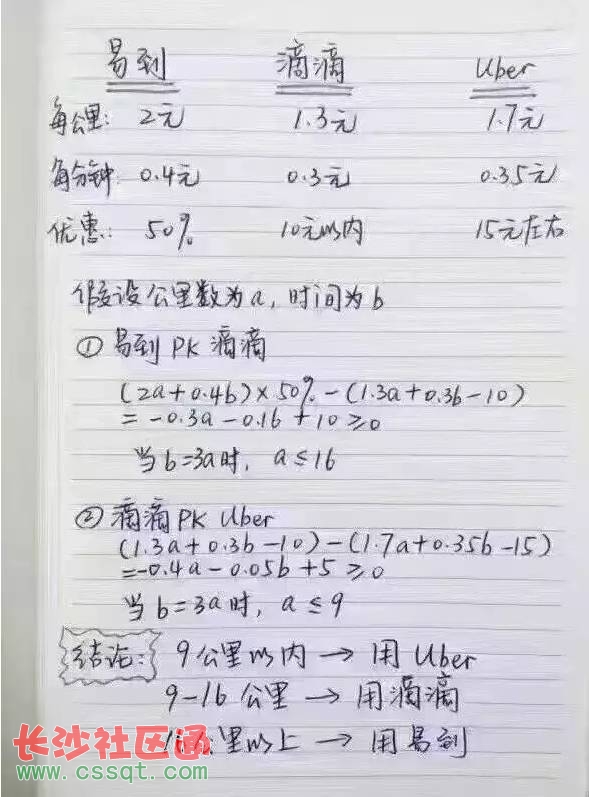 易到 滴滴 Uber
每公里: 2元 1.3元 1.7元
每分钟: 0.4元 0.3元 0.35元
优惠: 50% 10元以内 15元左右
假设公里数为a,时间为b
① 易到 PK 滴滴
(2a+0.4b)×50%-(1.3a+0.3b-10)
=-0.3a-0.1b+10≥0
当b=3a时, a≤16
② 滴滴 PK Uber
(1.3a+0.3b-10)-(1.7a+0.35b-15)
=-0.4a-0.05b+5≥0
当b=3a时, a≤9
结论: 9公里以内→用Uber
9-16公里→用滴滴
16公里以上→用易到
长沙社区通
www.cssqt.com